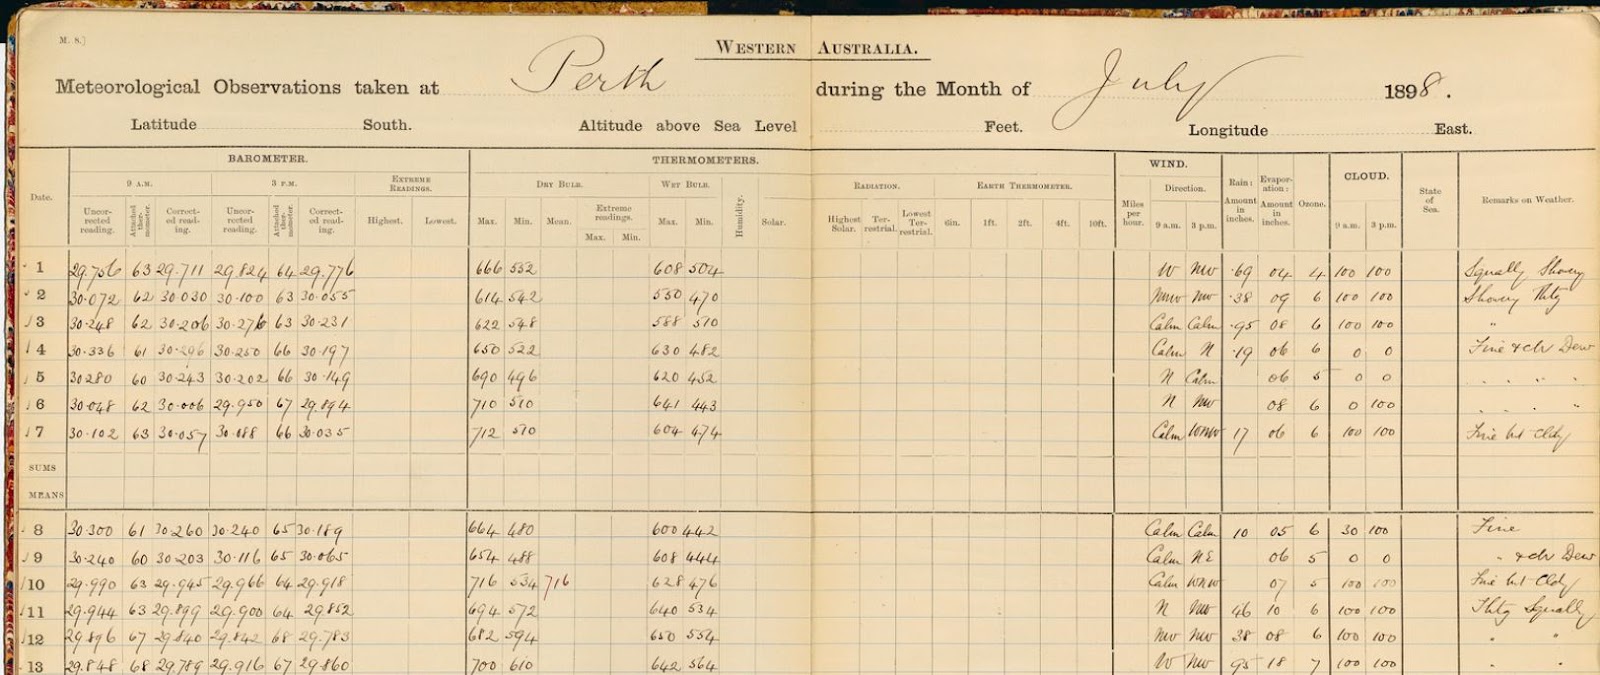 M. 8.]
WESTERN AUSTRALIA.
Meteorological Observations taken at Perth during the Month of July 1898.
Latitude South. Altitude above Sea Level Feet. Longitude East.
BAROMETER. THERMOMETERS. WIND. CLOUD.
9 A.M. 3 P.M. EXTREME READINGS. DRY BULB. WET BULB. RADIATION. EARTH THERMOMETER. Direction.
Date. Uncorrected reading. Attached thermometer. Corrected reading. Uncorrected reading. Attached thermometer. Corrected reading. Highest. Lowest. Max. Min. Mean. Extreme readings. Max. Min. Max. Min. Humidity. Solar. Highest Solar. Terrestrial. Lowest Terrestrial. 6in. 1ft. 2ft. 4ft. 10ft. Miles per hour. 9 a.m. 3 p.m. Rain: Amount in inches. Evaporation: Amount in inches. Ozone. 9 a.m. 3 p.m. State of Sea. Remarks on Weather.
1 29.756 63 29.711 29.824 64 29.776 666 552 608 504 W NW .69 04 4 100 100 Squally Showy
2 30.072 62 30.030 30.100 63 30.055 614 542 550 470 NNW NW .38 09 6 100 100 Showery Thtg
3 30.248 62 30.206 30.276 63 30.231 622 548 588 510 Calm Calm .95 08 6 100 100 "
4 30.336 61 30.296 30.250 66 30.197 650 522 630 482 Calm N .19 06 6 0 0 Fine & clr Dew
5 30280 60 30.243 30.202 66 30.149 690 496 620 452 N Calm 06 5 0 0 " " " "
6 30.048 62 30.006 29.950 67 29.894 710 510 641 443 N NW 08 6 0 100 " " " "
7 30.102 63 30.057 30.088 66 30.035 712 510 604 474 Calm WNW 17 06 6 100 100 Fine but Cldy
SUMS
MEANS
8 30.300 61 30.260 30.240 65 30.189 664 480 600 442 Calm Calm 10 05 6 30 100 Fine
9 30.240 60 30.203 30.116 65 30.065 654 488 608 444 Calm NE 06 5 0 0 " & clr Dew
10 29.990 63 29.945 29.966 64 29.918 716 534 716 628 476 Calm WNW 07 5 100 100 Fine but Cldy
11 29.944 63 29.899 29.900 64 29.852 694 572 640 534 N NW 46 10 6 100 100 Thtg Squally
12 29.896 67 29.840 29.842 68 29.783 682 594 650 554 NW NW 38 08 6 100 100 " "
13 29.848 68 29.789 29.916 67 29.860 700 610 642 564 W NW 95 18 7 100 100 " "